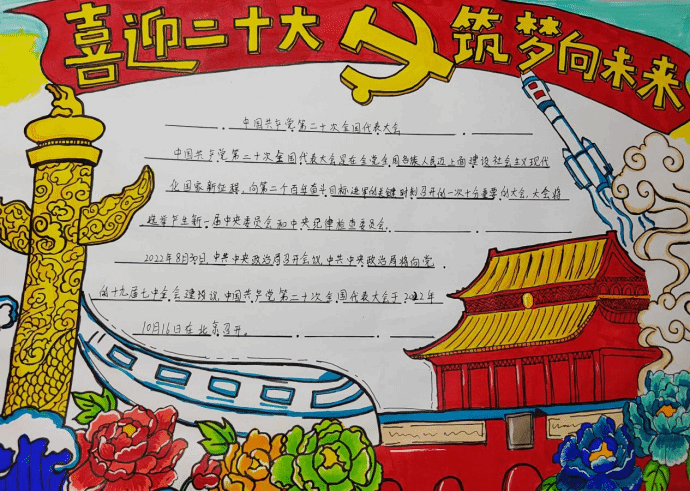 喜迎二十大 筑梦向未来
中国共产党第二十次全国代表大会
中国共产党第二十次全国代表大会是在全党全国各族人民迈上全面建设社会主义现代
化国家新征程、向第二个百年奋斗目标进军的关键时刻召开的一次十分重要的大会，大会将
选举产生新一届中央委员会和中央纪律检查委员会。
2022年8月30日，中共中央政治局召开会议，中共中央政治局将向党
的十九届七中全会建议，中国共产党第二十次全国代表大会于2022年
10月16日在北京召开。